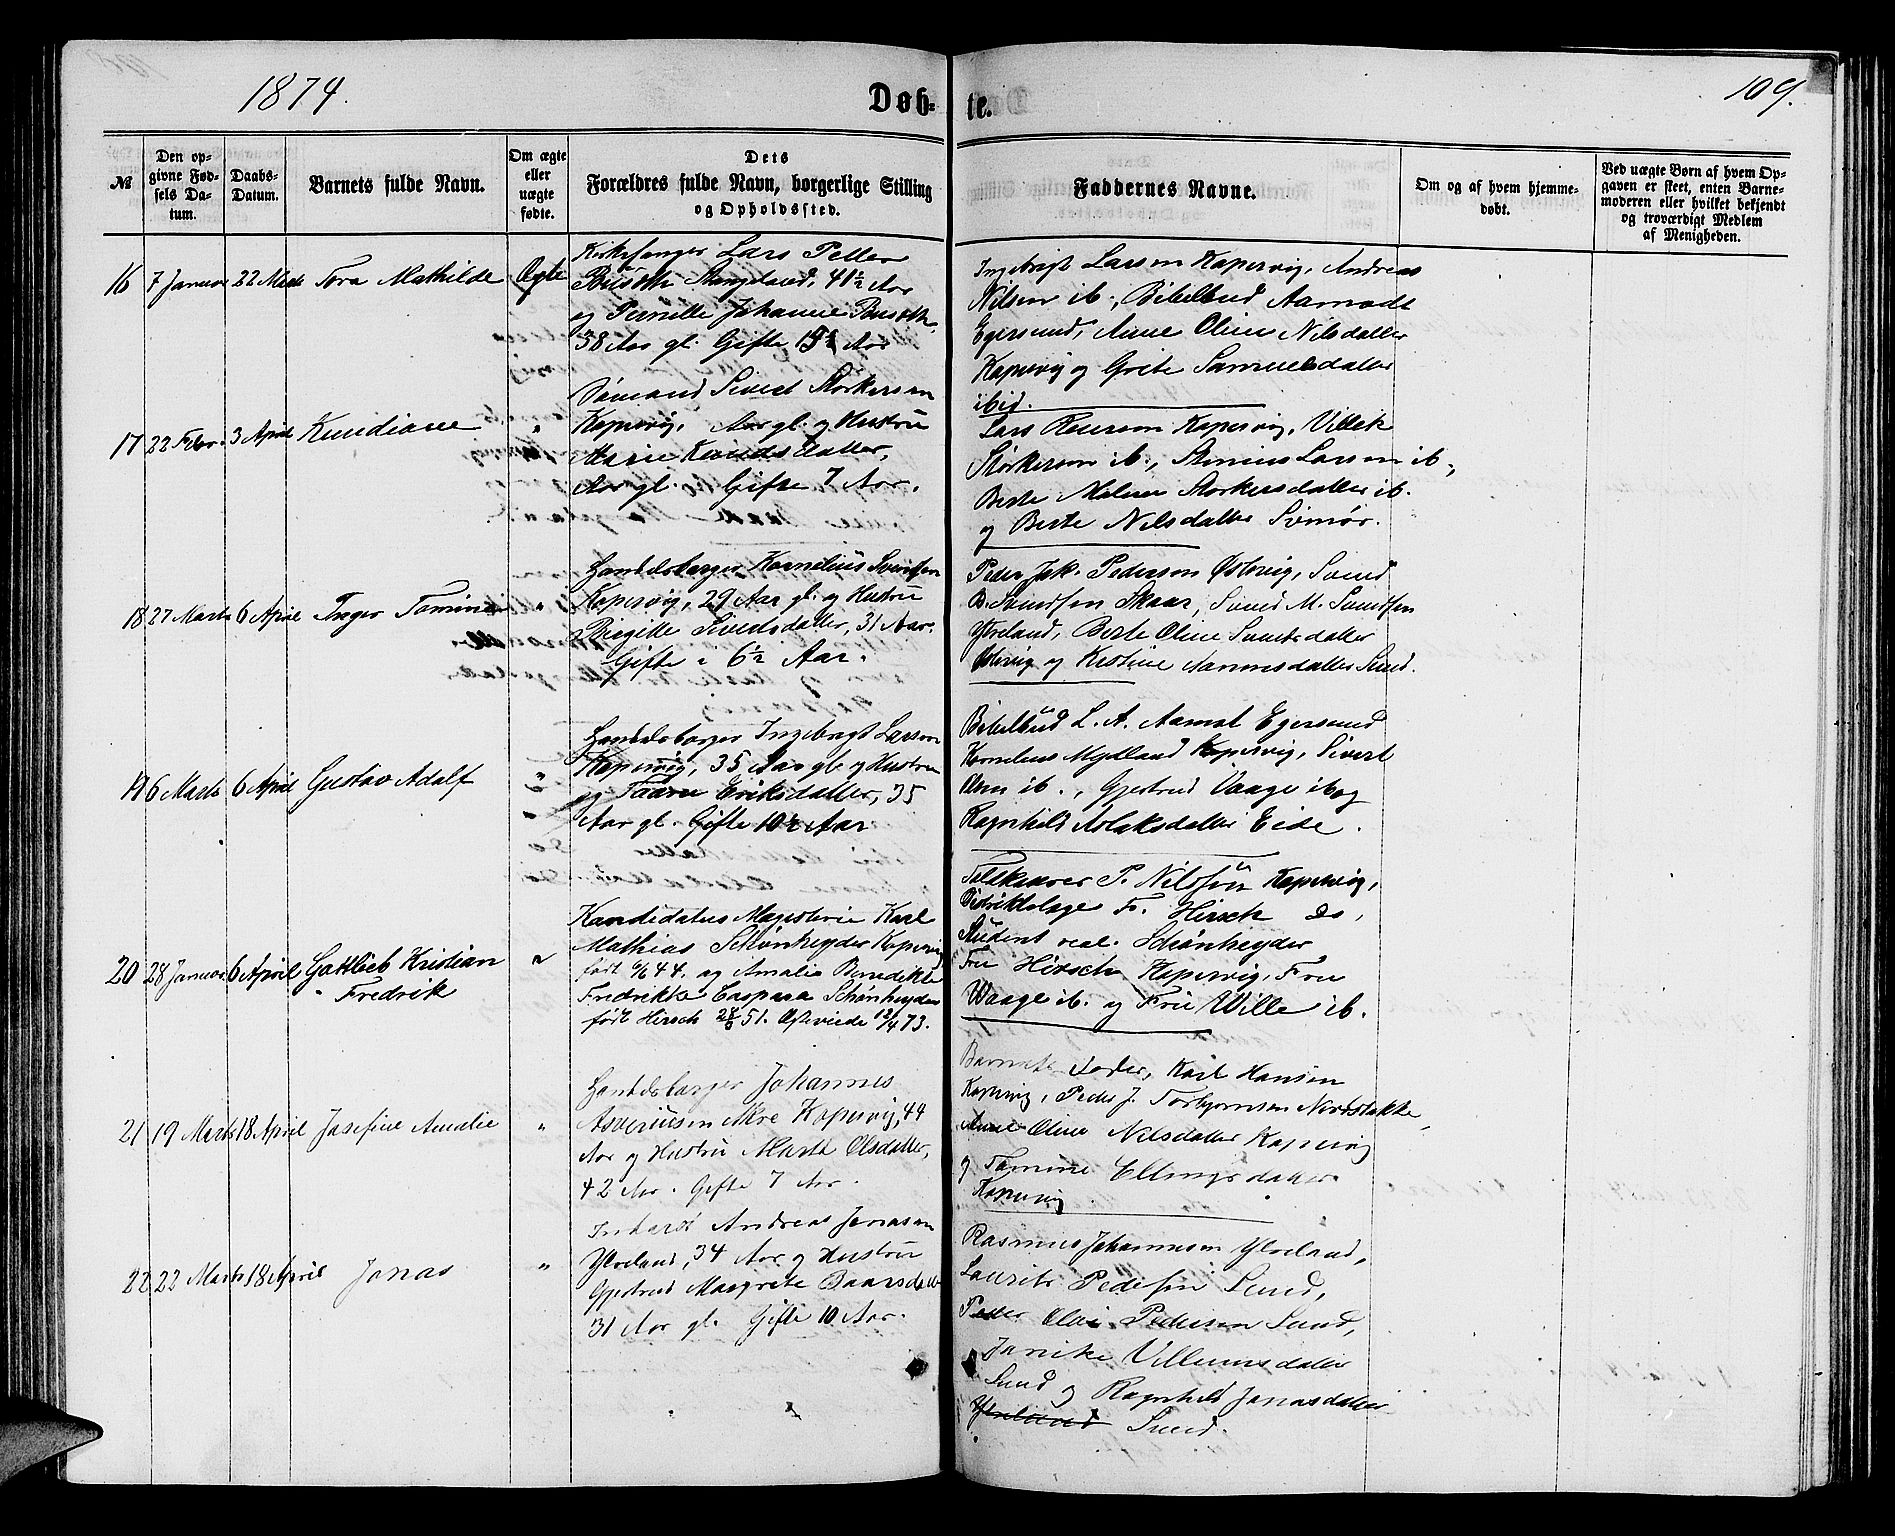 1874.
Døb-
te.
109.
№
Den op-
givne Fød-
sels Da-
tum.
Daabs-
Datum.
Barnets fulde Navn.
Om ægte
eller
uægte
fødte.
Dets
Forældres fulde Navn, borgerlige Stilling
og Opholdssted.
Faddernes Navne.
Om og af hvem hjemme-
døbt.
Ved uægte Børn af hvem Op-
gaven er skeet, enten Barne-
moderen eller hvilket bekjendt
og troværdigt Medlem
af Menigheden.
16 7 Januar 22 Marts Tora Mathilde Ægte
Kirkesanger Lars Petter
Stangeland, 41½ Aar
og Pernille Johanne
38 Aar gl. Gifte Aar
Ingebrigt Larsen Kopervig, Andreas
Nilsen ib., Bibelbud Aamodt
Egersund, Anne Oline Nilsdatter
Kopervig og Grete Samuelsdatter
ibid.
17 22 Febr. 3 April Knudiane "
Sømand Sivert Størkersen
Kopervig, Aar gl. og Hustru
Marie Knudsdatter,
Aar gl. Gifte 7 Aar.
Lars Kopervig, Villek
Størkersen ib., Larsen ib.,
Berte Malene Størkersdatter ib.
og Berte Nilsdatter
18 27 Marts 6 April Inger Tomine "
Handelsborger Kornelius Svendsen
Kopervig, 29 Aar gl. og Hustru
Birgitte Sivertsdatter, 31 Aar.
Gifte i 6½ Aar.
Peder Jak. Pedersen Østevig, Svend
B. Svendsen Skaar, Svend M. Svendsen
Ytreland, Berte Oline Svendsdatter
Østevig og Kristine Sund.
19 6 Marts 6 April Gustav Adolf "
Handelsborger Ingebrigt Larsen
Kopervig, 35 Aar gl. og Hustru
og Eriksdatter, 35
Aar gl. Gifte 10½ Aar
Bibelbud L. A. Aamot Egersund
Kornelius Mydland Kopervig, Sivert
ib., Gjertrud Vaage ib og
Ragnhild Aslaksdatter Eide.
20 28 Januar 6 April Gottlieb Kristian "
Fredrik
Kandidatus Magisterie Karl
Mathias Schønheyder Kopervig
født 6/6 44. og Amalia Benedikte
Fredrikke Caspara Schønheyder
født Hirsch 51. Ægteviede 12/4 73.
Toldkasserer P. Nilssen Kopervig,
Distriktslæge Fr. Hirsch do,
Student real. Schønheyder
Fru Hirsch Kopervig, Fru
Waage ib. og Fru Wille ib.
21 19 Marts 18 April Josefine Amalie "
Handelsborger Johannes
Asseriussen Akre Kopervig, 44
Aar og Hustru Marta Olsdatter,
42 Aar. Gifte 7 Aar.
Barnets Fader, Karl Hansen
Kopervig, Peder J. Torbjørnsen Nordstokke,
Anne Oline Nilsdatter Kopervig
og Tomine Ellingsdatter
Kopervig
22 22 Marts 18 April Jonas "
Inderst Andreas Jonasen
Ytreland, 34 Aar og Hustru
Gjertrud Margrete Baarsdatter
31 Aar gl. Gifte 10 Aar.
Rasmus Johannesen Ytreland,
Laurits Pedersen Sund,
Peder Olai Pedersen Sund,
Janike Villumsdatter
Sund og Ragnhild Jonasdatter
Ytreland Sund.